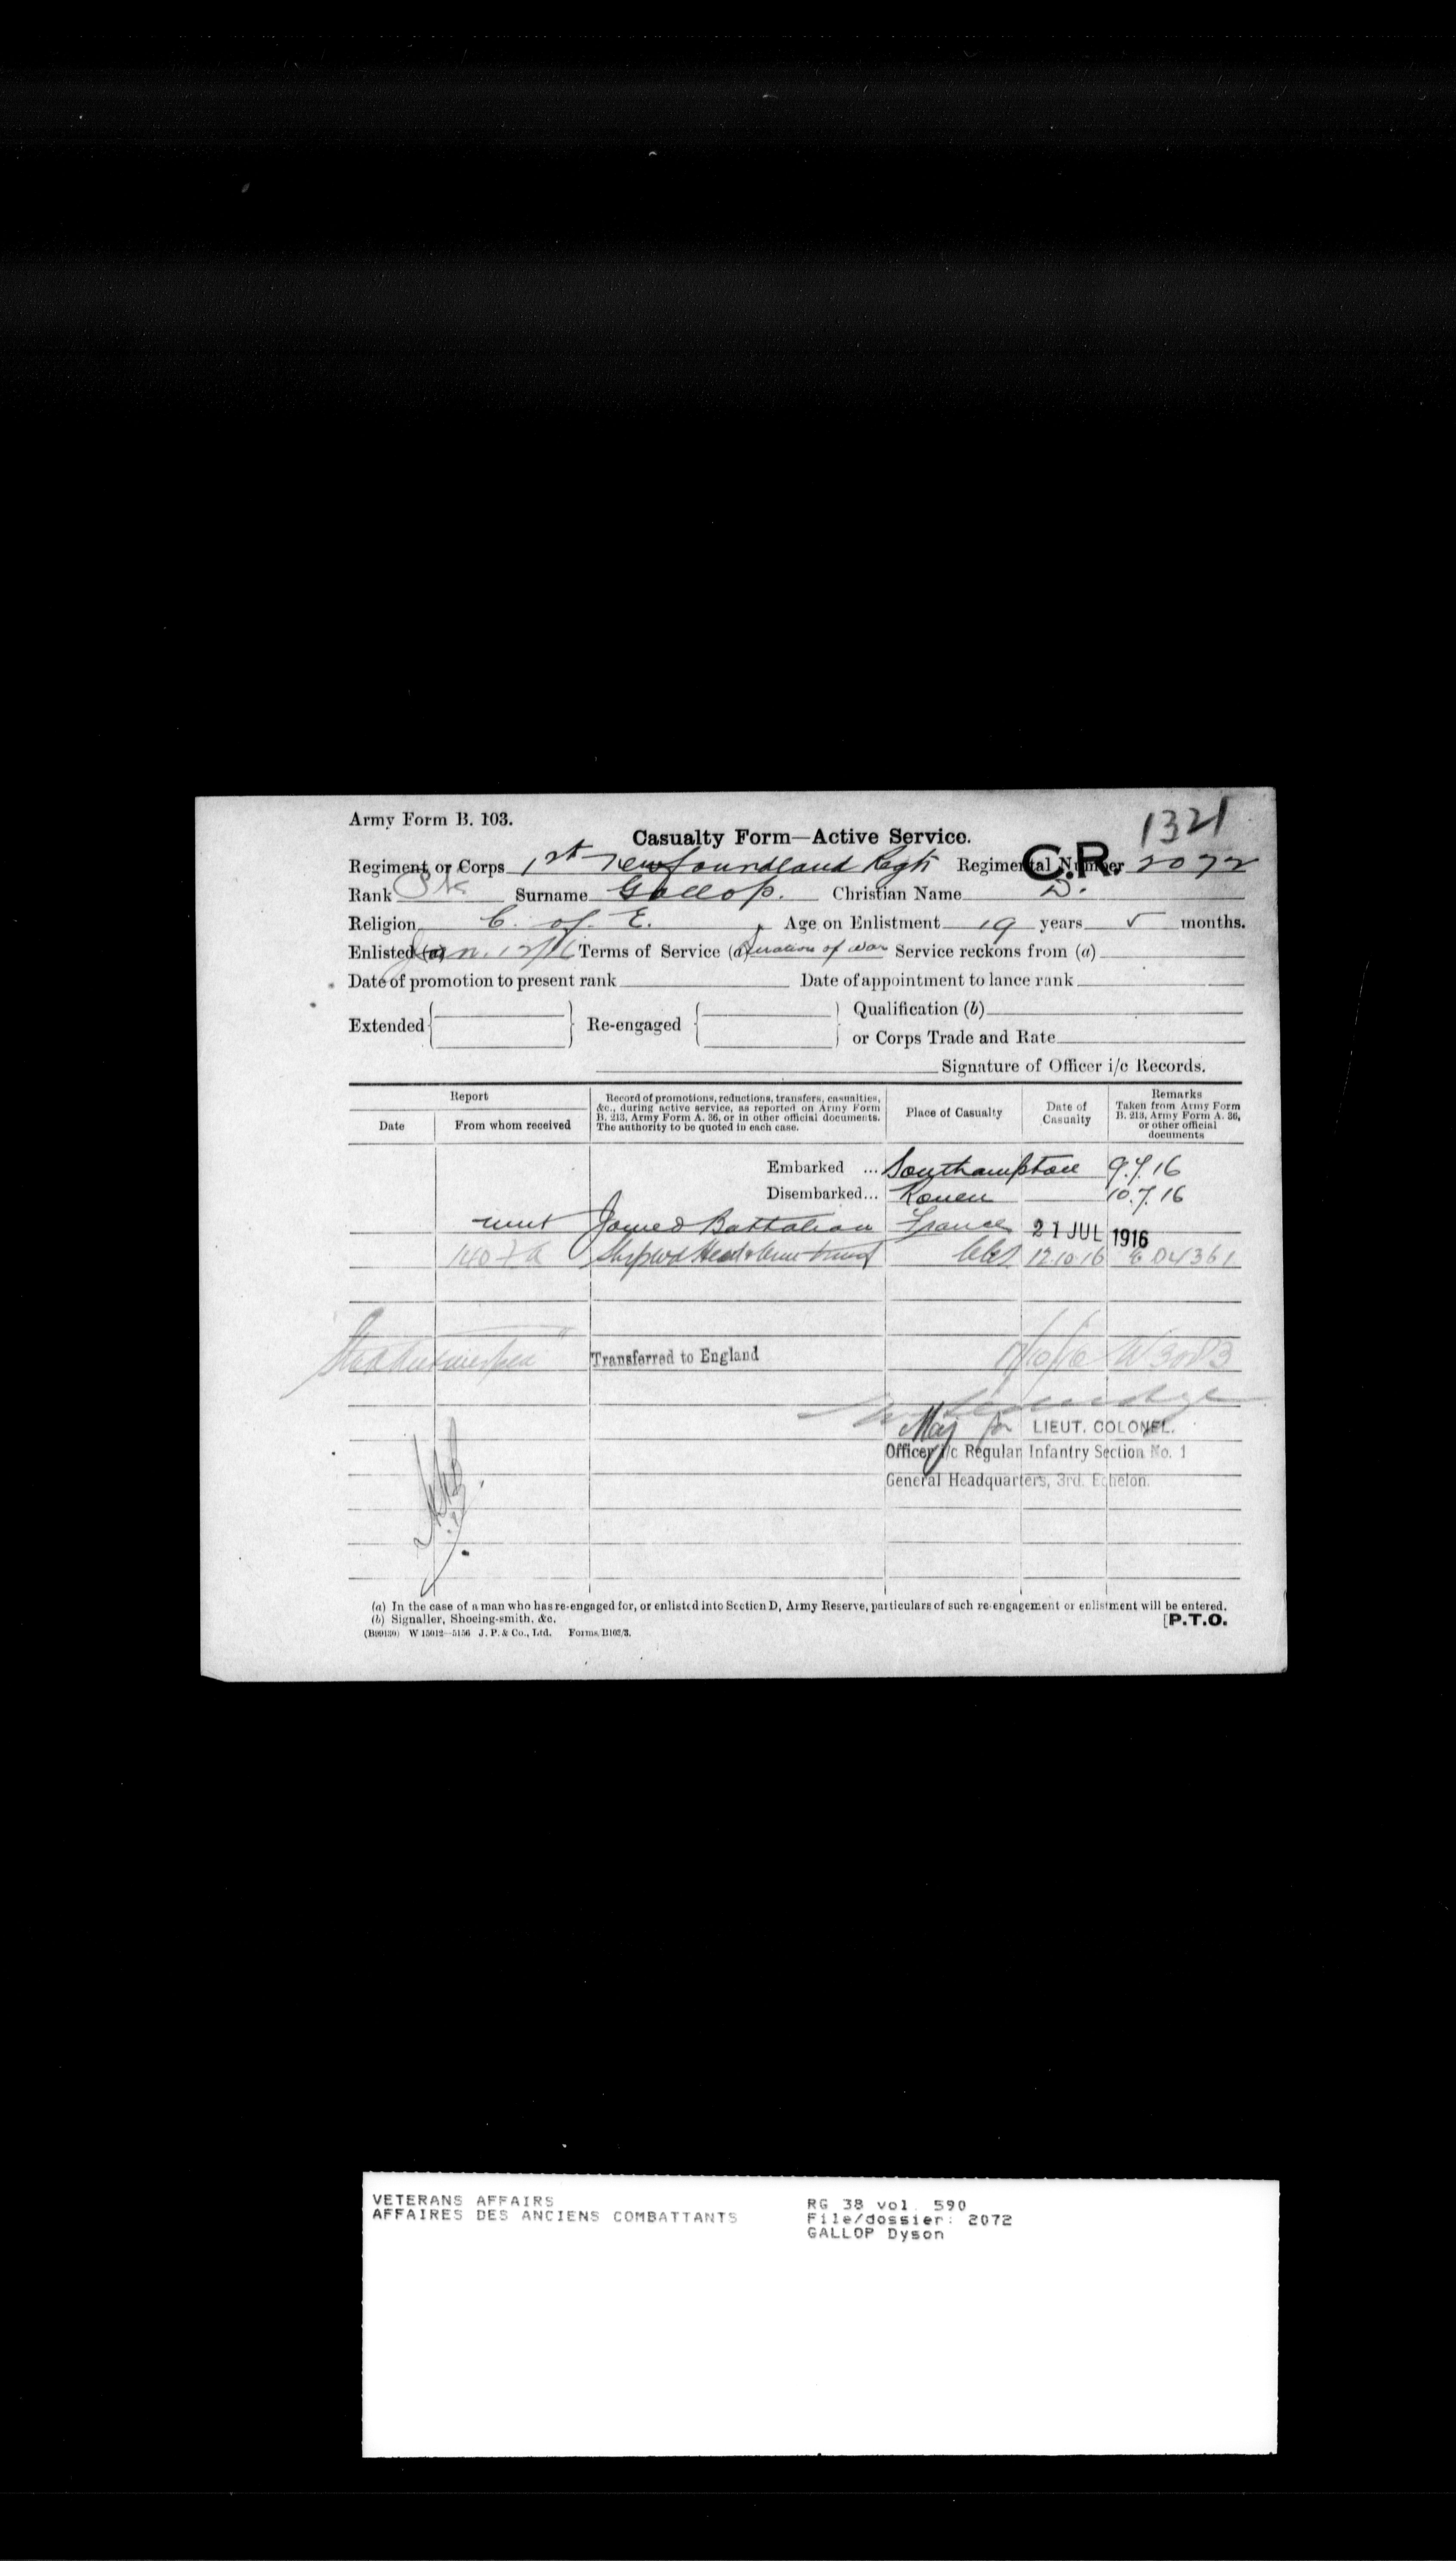 Army Form B. 103.
1321
Casualty Form—Active Service.
C.R.
Regiment or Corps 1st Newfoundland Regt Regimental Number 2072
Rank Pte Surname Gallop. Christian Name D.
Religion C. of E. Age on Enlistment 19 years ✓ months.
Enlisted (a) Jan. 12/16 Terms of Service (a) Duration of War Service reckons from (a)
Date of promotion to present rank Date of appointment to lance rank
Extended Re-engaged Qualification (b)
or Corps Trade and Rate
Signature of Officer i/c Records.
Report
Date From whom received
Record of promotions, reductions, transfers, casualties, &c., during active service, as reported on Army Form B. 213, Army Form A. 36, or in other official documents. The authority to be quoted in each case.
Place of Casualty
Date of Casualty
Remarks Taken from Army Form B. 213, Army Form A. 36, or other official documents
Embarked ... Southampton 9.7.16
Disembarked... Rouen 10.7.16
unit Joined Battalion France 21 JUL 1916
140 F A 12.10.16
Transferred to England
Maj for LIEUT. COLONEL.
Officer i/c Regular Infantry Section No. 1
General Headquarters, 3rd. Echelon.
(a) In the case of a man who has re-engaged for, or enlisted into Section D, Army Reserve, particulars of such re-engagement or enlistment will be entered.
(b) Signaller, Shoeing-smith, &c.
[P.T.O.
W 15012—5156 J. P. & Co., Ltd. Forms/B103/3.
VETERANS AFFAIRS
AFFAIRES DES ANCIENS COMBATTANTS
RG 38 vol. 590
File/dossier: 2072
GALLOP Dyson